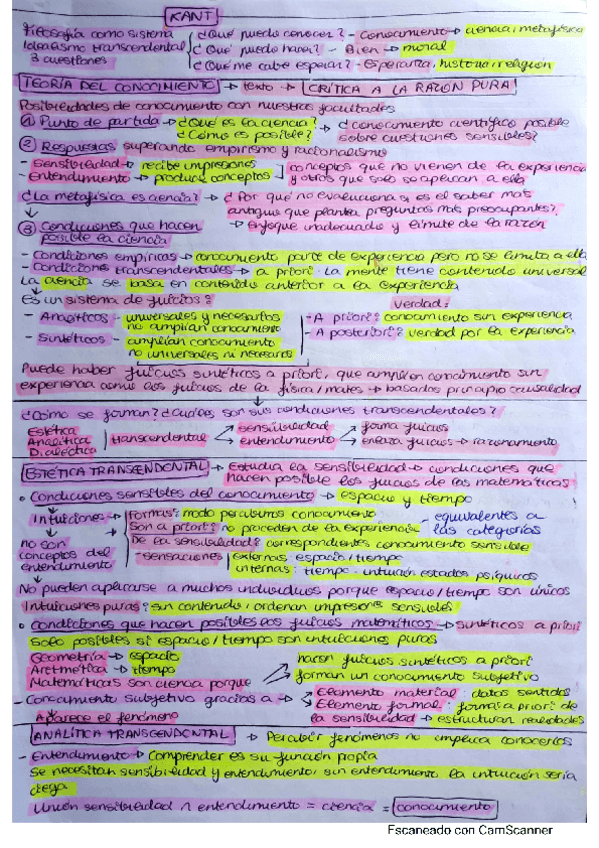 KANT
Filosofía como sistema ¿Qué puedo conocer? → conocimiento → ciencia, metafísica
Idealismo transcendental ¿Qué puedo hacer? → Bien → moral
3 cuestiones ¿Qué me cabe esperar? → Esperanza, historia, religión
TEORÍA DEL CONOCIMIENTO → texto → CRÍTICA A LA RAZÓN PURA
Posibilidades de conocimiento con nuestras facultades
① Punto de partida → ¿Qué es la ciencia? → ¿conocimiento científico posible
¿Cómo es posible? sobre cuestiones sensibles?
② Respuestas superando empirismo y racionalismo
- Sensibilidad → recibe impresiones conceptos que no vienen de la experiencia
- Entendimiento → produce conceptos y otros que solo se aplican a ella
¿La metafísica es ciencia? → ¿Por qué no evoluciona si es el saber más
antiguo que plantea preguntas más preocupantes?
③ Condiciones que hacen → enfoque inadecuado y límite de la razón
posible la ciencia
- Condiciones empíricas → conocimiento parte de experiencia pero no se limita a ella
- Condiciones transcendentales → a priori. La mente tiene contenido universal
La ciencia se basa en contenido anterior a la experiencia
Es un sistema de juicios: verdad:
- Analíticos - universales y necesarios - A priori: conocimiento sin experiencia
no amplían conocimiento - A posteriori: verdad por la experiencia
- Sintéticos - amplían conocimiento
no universales ni necesarios
Puede haber juicios sintéticos a priori, que amplíen conocimiento sin
experiencia como los juicios de la física/mates → basados principio causalidad
¿Cómo se forman? ¿Cuáles son sus condiciones transcendentales?
Estética sensibilidad forma juicios
Analítica transcendental entendimiento enlaza juicios → razonamiento
Dialéctica
ESTÉTICA TRANSCENDENTAL → Estudia la sensibilidad → condiciones que
hacen posible los juicios de las matemáticas
• Condiciones sensibles del conocimiento → espacio y tiempo
Intuiciones → formas: modo percibimos conocimiento - equivalentes a
Son a priori: no proceden de la experiencia las categorías
no son De la sensibilidad: correspondientes conocimiento sensible
conceptos del - sensaciones externas: espacio/tiempo
entendimiento internas: tiempo - intuición estados psíquicos
No pueden aplicarse a muchos individuos porque espacio/tiempo son únicos
Intuiciones puras: sin contenido, ordenan impresiones sensibles
• Condiciones que hacen posibles los juicios matemáticos → sintéticos a priori
Solo posibles si espacio/tiempo son intuiciones puras
Geometría → espacio hacen juicios sintéticos a priori
Aritmética → tiempo forman un conocimiento subjetivo
Matemáticas son ciencia porque
- Conocimiento subjetivo gracias a → Elemento material: datos sentidos
Elemento formal: formas a priori de
Aparece el fenómeno la sensibilidad → estructuran realidades
ANALÍTICA TRANSCENDENTAL → Percibir fenómenos no implica conocerlos
- Entendimiento → Comprender es su función propia
Se necesitan sensibilidad y entendimiento, sin entendimiento la intuición sería
ciega
Unión sensibilidad n entendimiento = ciencia = conocimiento
Escaneado con CamScanner